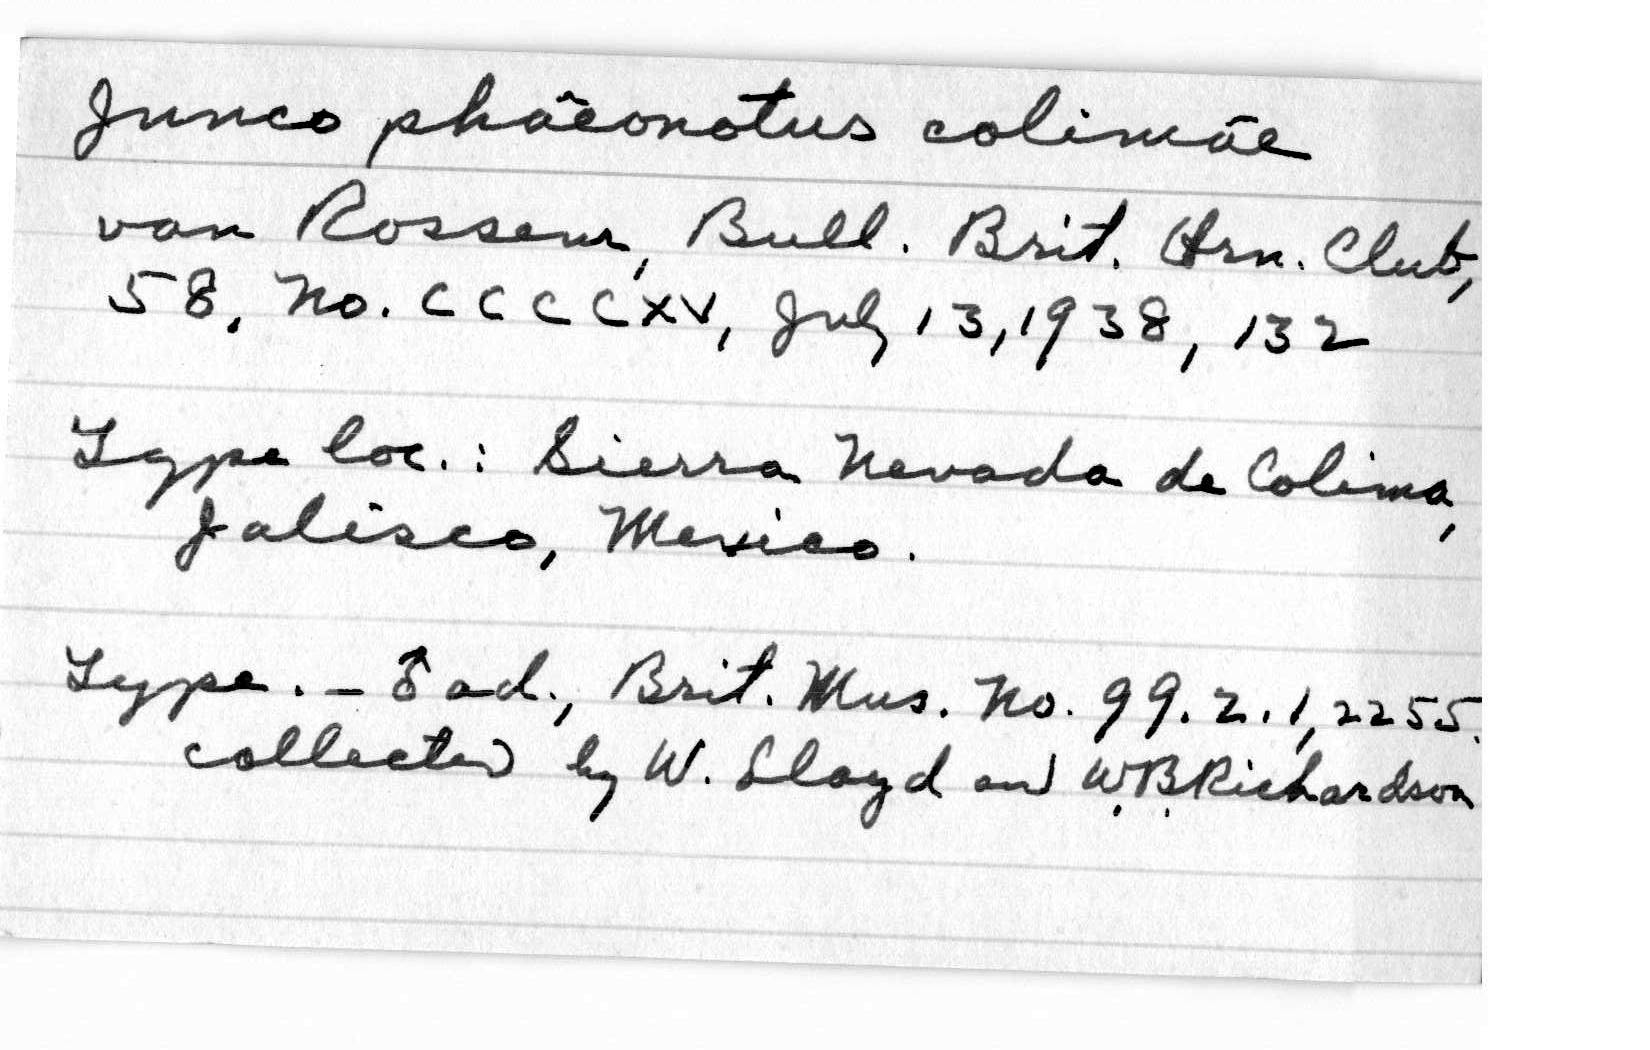 Junco phaeonotus colimae
van Rossem, Bull. Brit. Orn. Club,
58, No. CCCCXV, July 13, 1938, 132
Type loc.: Sierra Nevada de Colima,
Jalisco, Mexico.
Type. - ♂ ad., Brit. Mus. No. 99.2.1,2255.
collected by W. Lloyd and W.B. Richardson